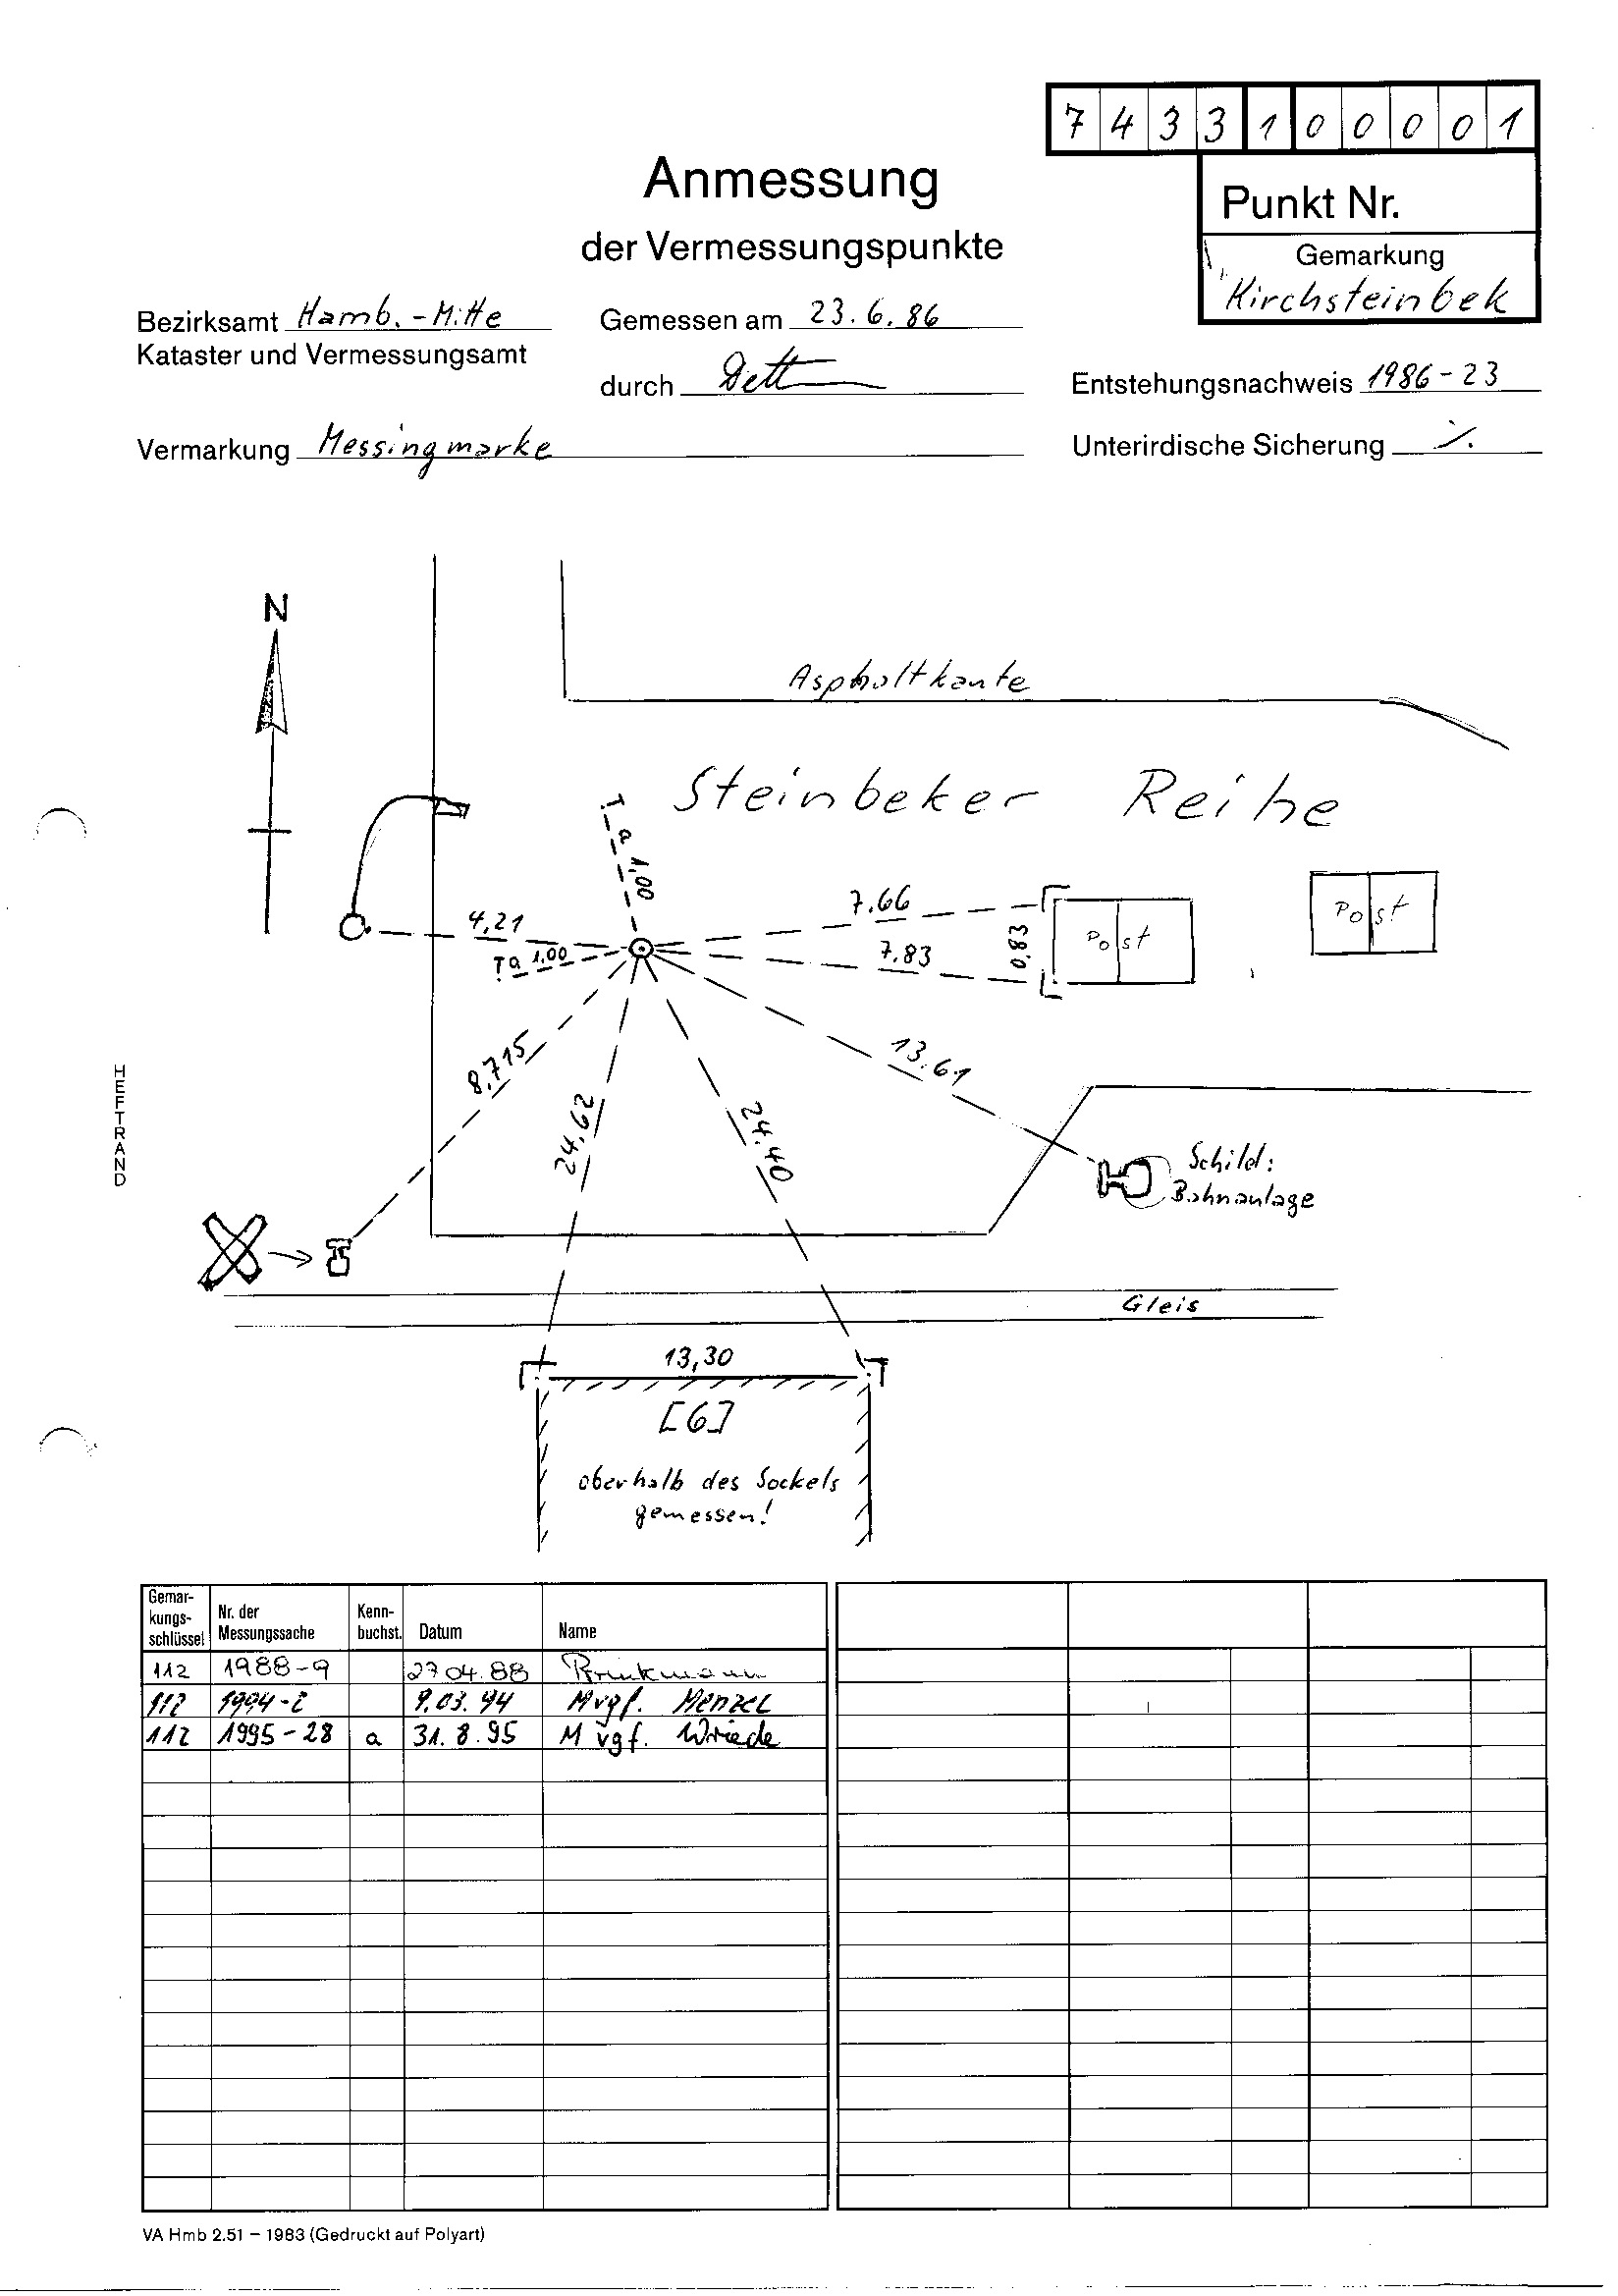 7 4 3 3 1 0 0 0 0 1
Anmessung
der Vermessungspunkte
Punkt Nr.
Gemarkung
Kirchsteinbek
Bezirksamt Hamb.-Mitte
Kataster und Vermessungsamt
Gemessen am 23.6.86
durch
Entstehungsnachweis 1986-23
Vermarkung Messingmarke
Unterirdische Sicherung ./.
N
Asphaltkante
Steinbeker Reihe
T a 1,00
4,21
T a 1.00
7.66
7.83
0,83
Post
Post
8,715
24,62
24,40
13.61
HEFTRAND
Schild:
Bahnanlage
Gleis
13,30
[6]
oberhalb des Sockels
gemessen!
Gemar-
kungs-
schlüssel
Nr. der
Messungssache
Kenn-
buchst.
Datum
Name
112 1988-9 27.04.88 Brinkmann
112 1994-2 9.03.94 Mvgf. Menzel
112 1995-28 a 31.8.95 M vgf. Wriede
VA Hmb 2.51 – 1983 (Gedruckt auf Polyart)